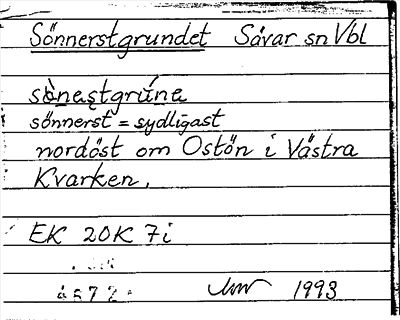 Sönnerstgrundet Sävar sn Vbl
sö̀nestgrúna
sönnerst = sydligast
nordöst om Ostön i Västra
Kvarken.
EK 20K 7i
1993